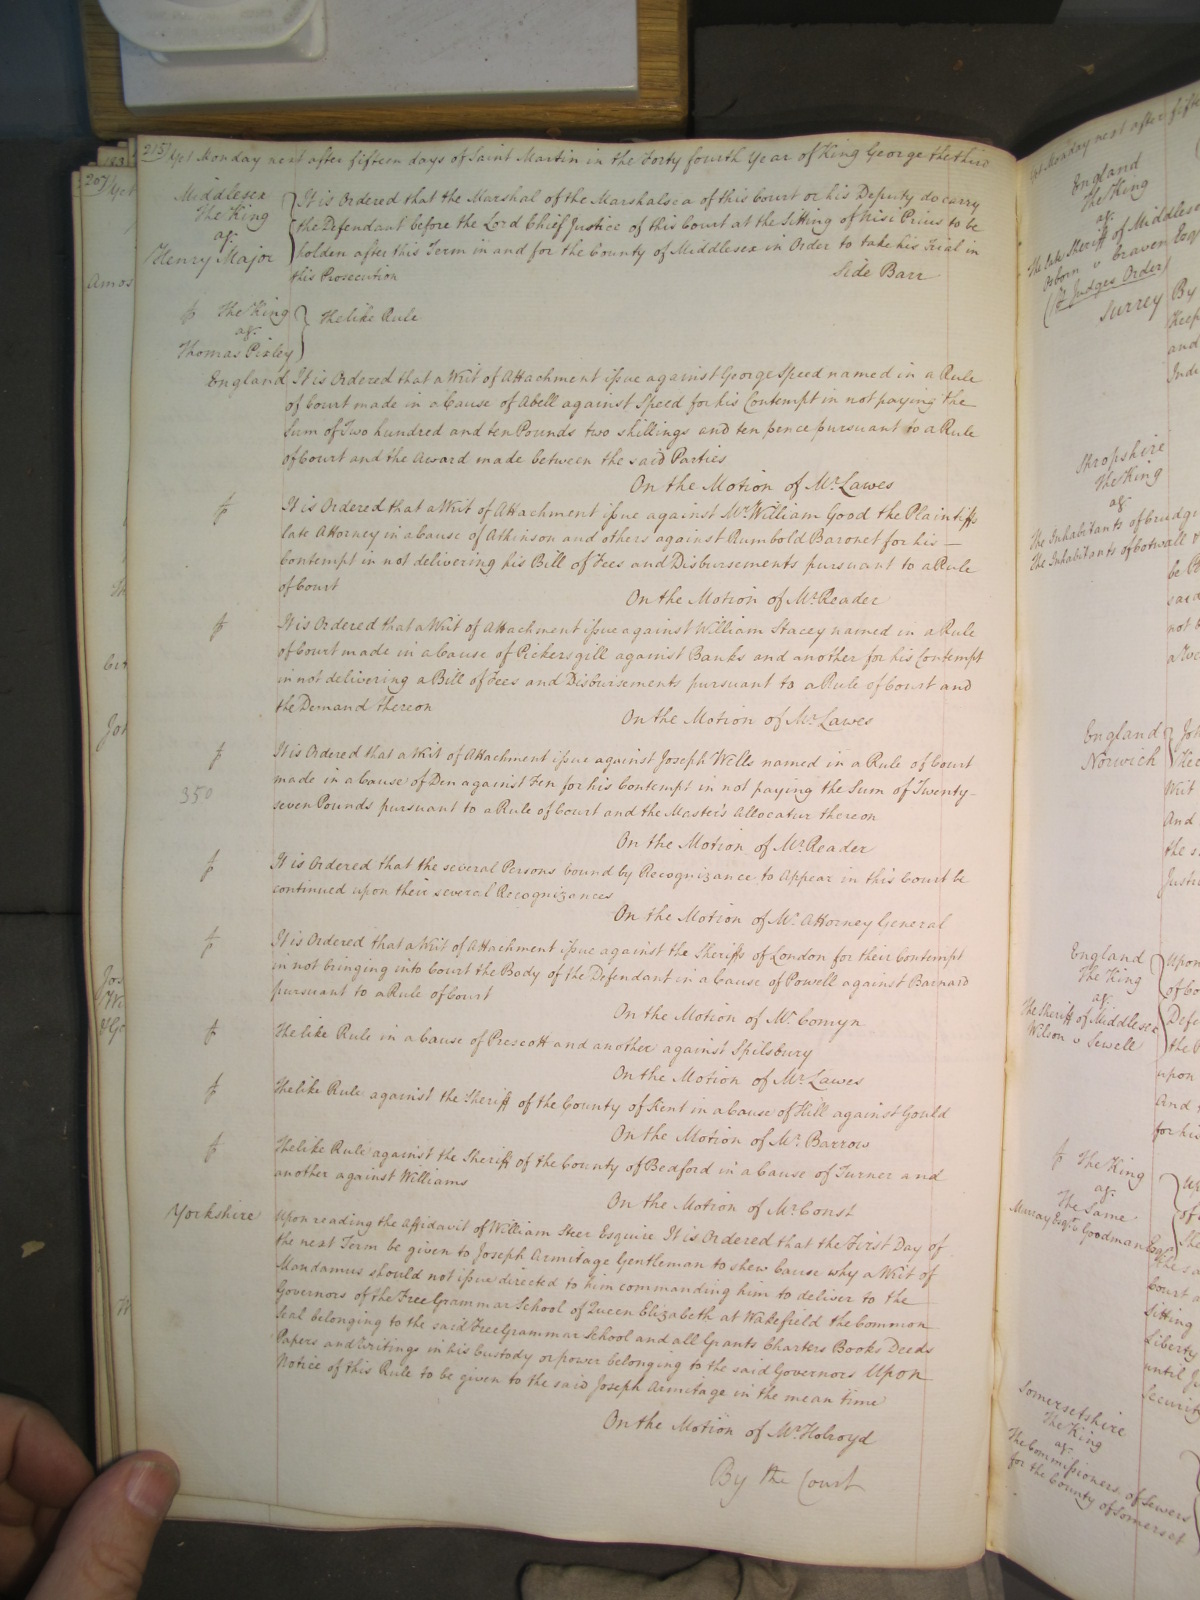 215 Yet Monday next after fifteen days of Saint Martin in the Forty fourth Year of King George the third
Middlesex
The King
agt.
Henry Major
It is Ordered that the Marshal of the Marshalsea of this Court or his Deputy do carry
the Defendant before the Lord Chief Justice of this Court at the Sitting of Nisi Prius to be
holden after this Term in and for the County of Middlesex in Order to take his Trial in
this Prosecution
Side Barr
The King
agt.
Thomas Pixley
The like Rule
England It is Ordered that a Writ of Attachment issue against George Speed named in a Rule
of Court made in a Cause of Abell against Speed for his Contempt in not paying the
Sum of Two hundred and ten Pounds two shillings and ten pence pursuant to a Rule
of Court and the Award made between the said Parties
On the Motion of Mr. Lawes
It is Ordered that a Writ of Attachment issue against Mr. William Good the Plaintiffs
late Attorney in a Cause of Atkinson and others against Rumbold Baronet for his
Contempt in not delivering his Bill of Fees and Disbursements pursuant to a Rule
of Court
On the Motion of Mr. Reader
It is Ordered that a Writ of Attachment issue against William Stacey named in a Rule
of Court made in a Cause of Pickersgill against Banks and another for his Contempt
in not delivering a Bill of Fees and Disbursements pursuant to a Rule of Court and
the Demand thereon
On the Motion of Mr. Lawes
It is Ordered that a Writ of Attachment issue against Joseph Wells named in a Rule of Court
made in a Cause of Den against Fen for his Contempt in not paying the Sum of Twenty-
350
seven Pounds pursuant to a Rule of Court and the Master's Allocatur thereon
On the Motion of Mr. Reader
It is Ordered that the several Persons bound by Recognizance to Appear in this Court be
continued upon their several Recognizances
On the Motion of Mr. Attorney General
It is Ordered that a Writ of Attachment issue against the Sheriffs of London for their Contempt
in not bringing into Court the Body of the Defendant in a Cause of Powell against Barnard
pursuant to a Rule of Court
On the Motion of Mr. Comyn
The like Rule in a Cause of Prescott and another against Spilsbury
On the Motion of Mr. Lawes
The like Rule against the Sheriff of the County of Kent in a Cause of Hill against Gould
On the Motion of Mr. Barrow
The like Rule against the Sheriff of the County of Bedford in a Cause of Turner and
another against Williams
On the Motion of Mr. Const
Yorkshire Upon reading the Affidavit of William Steer Esquire It is Ordered that the First Day of
the next Term be given to Joseph Armitage Gentleman to shew Cause why a Writ of
Mandamus should not issue directed to him commanding him to deliver to the
Governors of the Free Grammar School of Queen Elizabeth at Wakefield the Common
Seal belonging to the said Free Grammar School and all Grants Charters Books Deeds
Papers and Writings in his Custody or power belonging to the said Governors Upon
Notice of this Rule to be given to the said Joseph Armitage in the mean time
On the Motion of Mr. Holroyd
By the Court
Monday next after
England
The King
agt.
The late Sheriff of Middlesex
Osborn v Craven Esq
Judges Order
Surrey By
Keep
and
Shropshire
The King
agt.
The Inhabitants of
The Inhabitants of
be
said
not
England
Norwich
Writ
And
the
England
The King
agt.
The Sheriff of Middlesex
Wilson v Sewell
Upon
of Co
Defe
the
upon
And
for his
The King
agt.
The Same
Murray Esqr. v Goodman Esqr.
The
Court
Sitting
Liberty
until
Security
Somersetshire
The King
agt.
The Commissioners of Sewers
for the County of Somerset